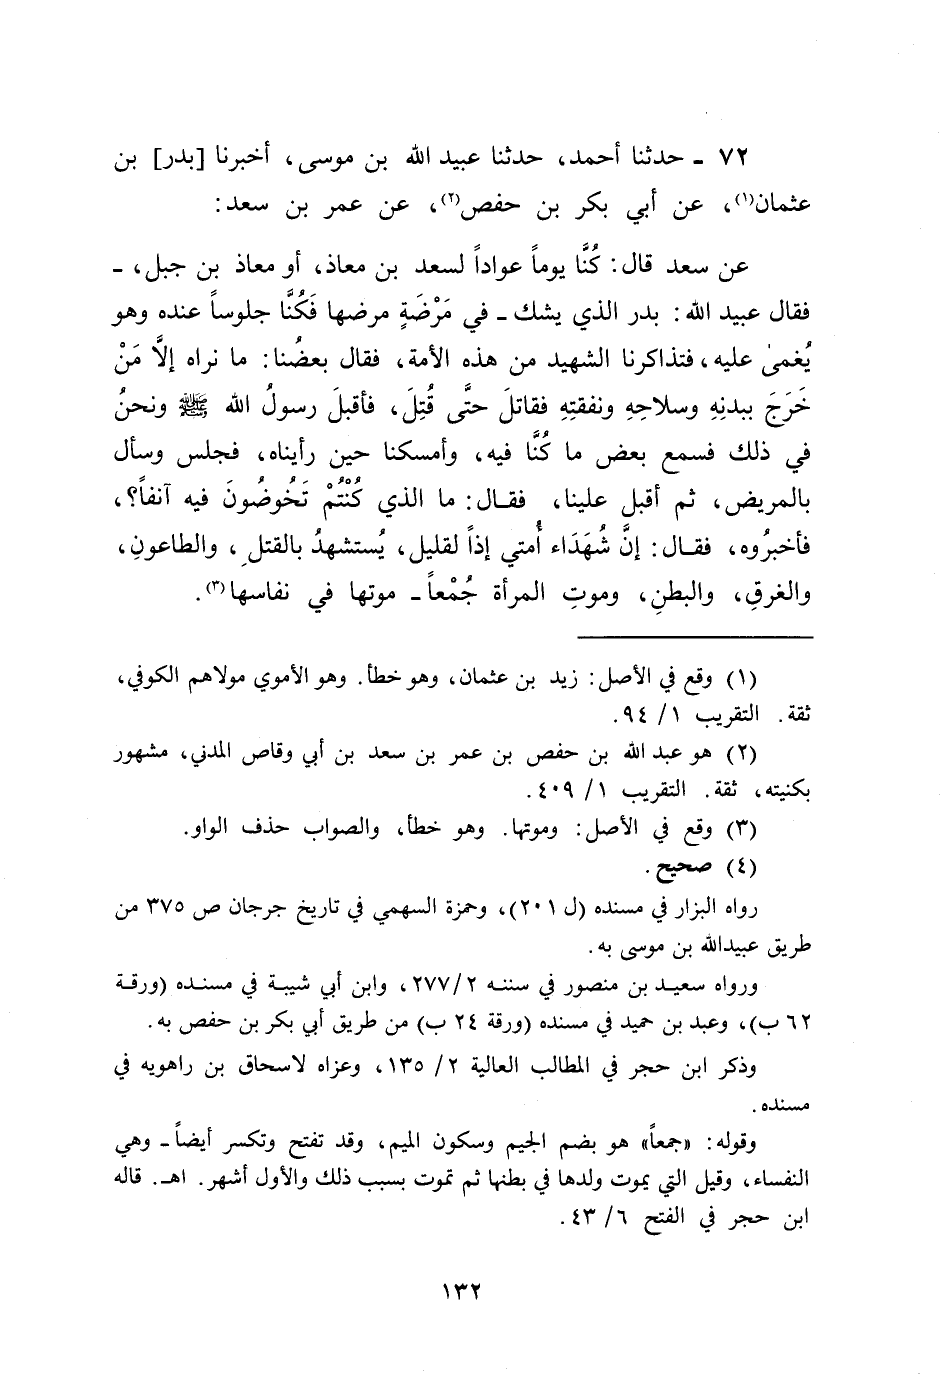 ٧٢ - حدثنا أحمد، حدثنا عبيد الله بن موسى، أخبرنا [بدر] بن
عثمان(١)، عن أبي بكر بن حفص(٢)، عن عمر بن سعد:
عن سعد قال: كُنَّا يوماً عواداً لسعد بن معاذ، أو معاذ بن جبل، -
فقال عبيد الله: بدر الذي يشك - في مَرْضَةٍ مرضها فَكُنَّا جلوساً عنده وهو
يُغمىٰ عليه، فتذاكرنا الشهيد من هذه الأمة، فقال بعضُنا: ما نراه إلَّا مَنْ
خَرَجَ ببدنِهِ وسلاحِهِ ونفقتِهِ فقاتلَ حتَّى قُتِلَ، فأقبلَ رسولُ الله ﷺ ونحنُ
في ذلك فسمع بعض ما كُنَّا فيه، وأمسكنا حين رأيناه، فجلس وسأل
بالمريض، ثم أقبل علينا، فقـال: ما الذي كُنْتُمْ تَخُوضُونَ فيه آنفاً؟،
فأخبرُوه، فقـال: إنَّ شُهَدَاء أُمتي إذاً لقليل، يُستشهدُ بالقتلِ، والطاعونِ،
والغرقِ، والبطنِ، وموتِ المرأة جُمْعاً - موتها في نفاسها(٣).
(١) وقع في الأصل: زيد بن عثمان، وهو خطأ. وهو الأموي مولاهم الكوفي،
ثقة. التقريب ١/ ٩٤.
(٢) هو عبد الله بن حفص بن عمر بن سعد بن أبي وقاص المدني، مشهور
بكنيته، ثقة. التقريب ١/ ٤٠٩.
(٣) وقع في الأصل: وموتها. وهو خطأ، والصواب حذف الواو.
(٤) صحيح.
رواه البزار في مسنده (ل ٢٠١)، وحمزة السهمي في تاريخ جرجان ص ٣٧٥ من
طريق عبيدالله بن موسى به.
ورواه سعيـد بن منصور في سننـه ٢/ ٢٧٧، وابن أبي شيبـة في مسنـده (ورقـة
٦٢ ب)، وعبد بن حميد في مسنده (ورقة ٢٤ ب) من طريق أبي بكر بن حفص به.
وذكر ابن حجر في المطالب العالية ٢/ ١٣٥، وعزاه لاسحاق بن راهويه في
مسنده.
وقوله: «جمعاً» هو بضم الجيم وسكون الميم، وقد تفتح وتكسر أيضاً - وهي
النفساء، وقيل التي يموت ولدها في بطنها ثم تموت بسبب ذلك والأول أشهر. اهـ. قاله
ابن حجر في الفتح ٦/ ٤٣.
١٣٢